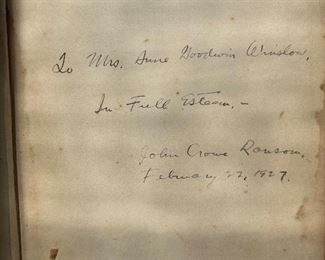 To Mrs. Anne Goodwin Winslow,
In Full Esteem, -
John Crowe Ransom,
February 22, 1927.